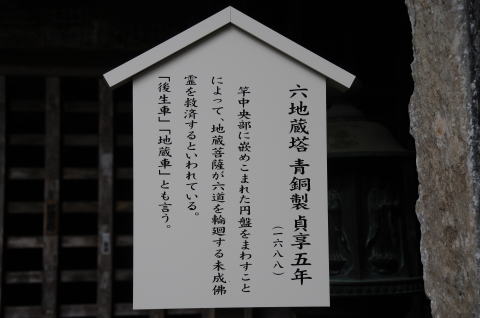 六地蔵塔 青銅製 貞享五年
(一六八八)
竿中央部に嵌めこまれた円盤をまわすこと
によって、地蔵菩薩が六道を輪廻する未成佛
霊を救済するといわれている。
「後生車」「地蔵車」とも言う。